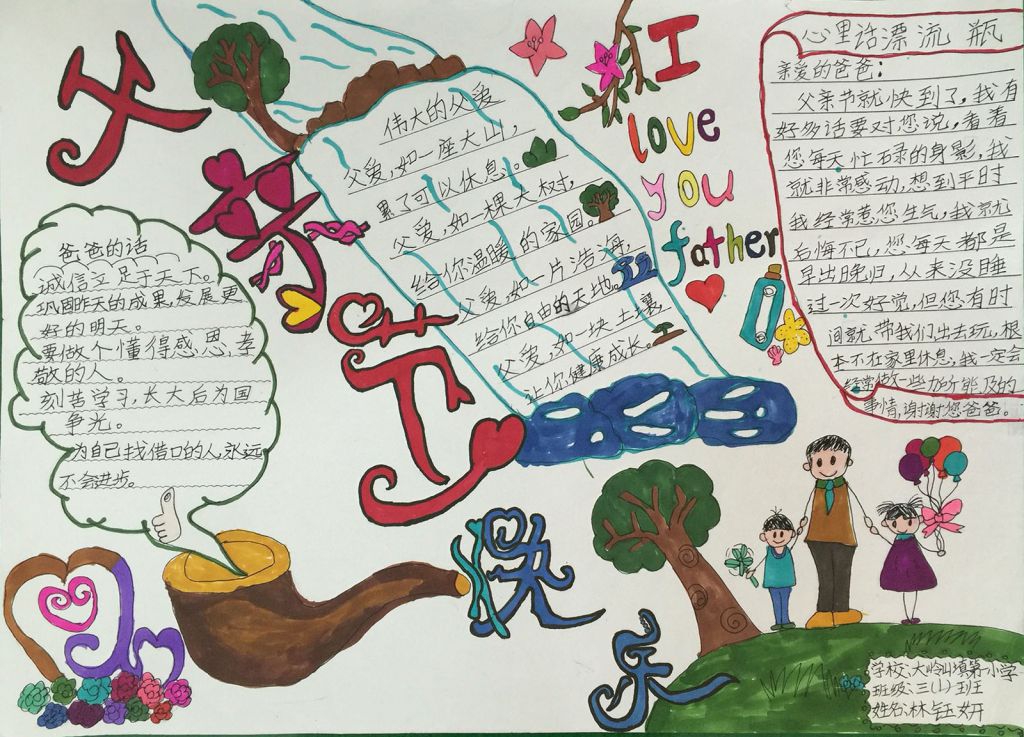 父亲节
快乐
I
love
you
father
爸爸的话
诚信立足于天下。
巩固昨天的成果,发展更
好的明天。
要做个懂得感恩,孝
敬的人。
刻苦学习,长大后为国
争光。
为自己找借口的人永远
不会进步。
伟大的父爱
父爱,如一座大山,
累了可以休息。
父爱,如一棵大树,
给你温暖的家园。
父爱,如一片浩海,
给你自由的天地。
父爱,如一块土壤,
让你健康成长。
心里话漂流瓶
亲爱的爸爸:
父亲节就快到了,我有
好多话要对您说,看着
您每天忙碌的身影,我
就非常感动,想到平时
我经常惹您生气,我就
后悔不已,您每天都是
早出晚归,从来没睡
过一次好觉,但您有时
间就带我们出去玩,根
本不在家里休息,我一定会
经常做一些力所能及的
事情,谢谢您爸爸。
学校:大岭山填第一小学
班级:三(1)班
姓名:林钰妍